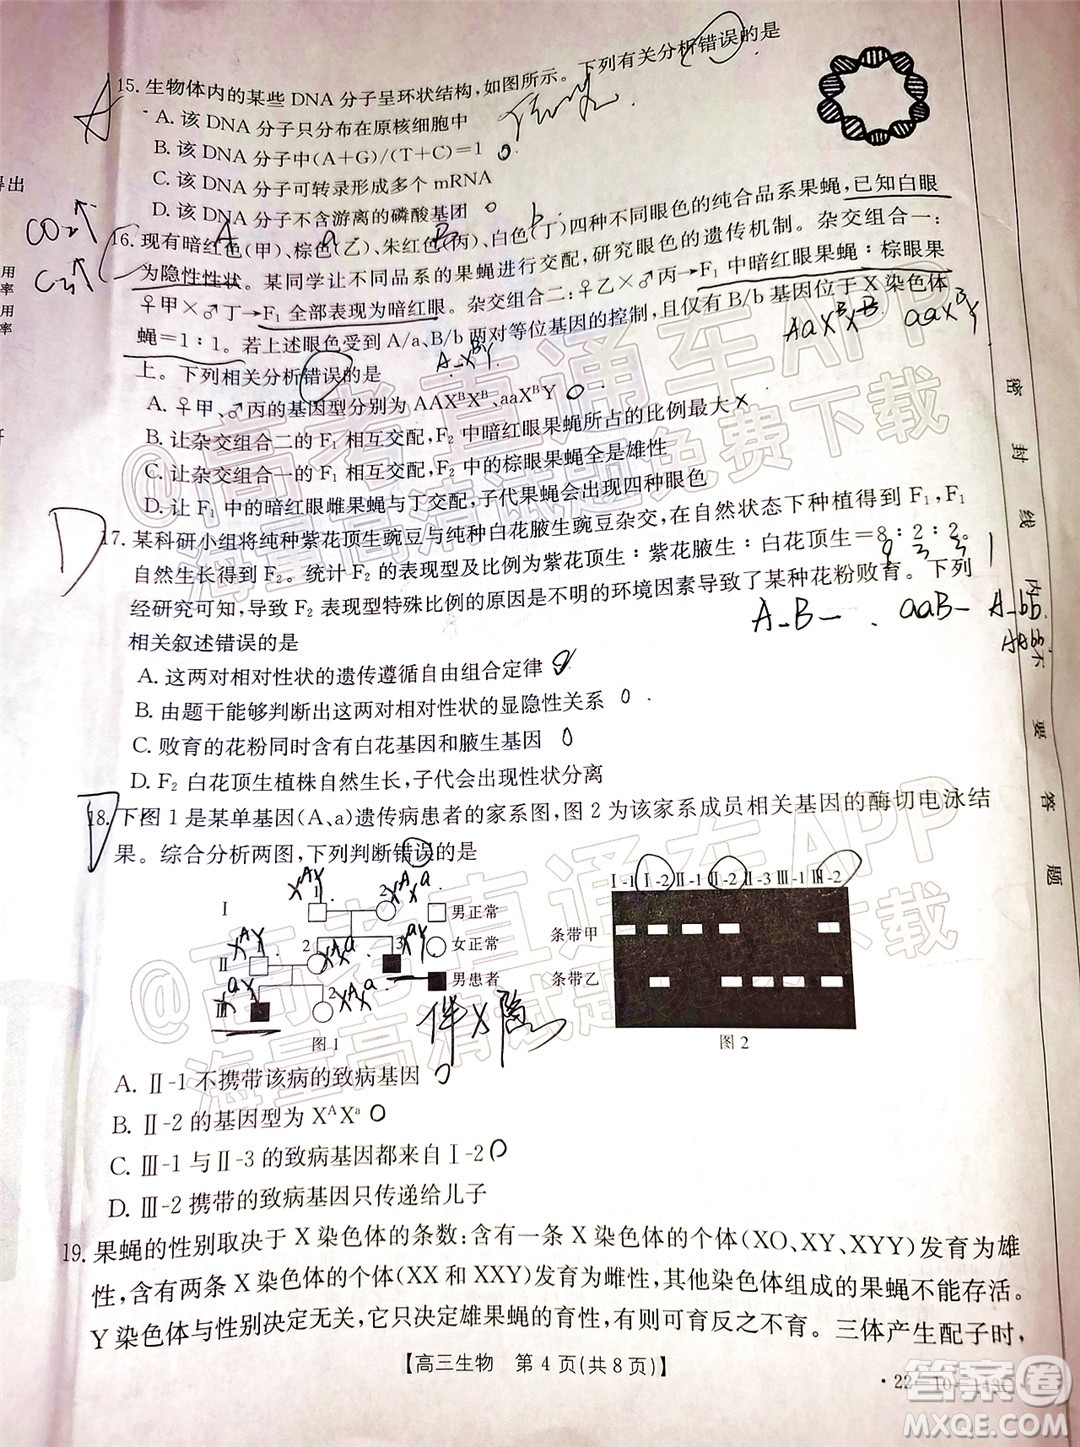 15. 生物体内的某些 DNA 分子呈环状结构,如图所示。下列有关分析错误的是
A. 该 DNA 分子只分布在原核细胞中
B. 该 DNA 分子中(A+G)/(T+C)=1
C. 该 DNA 分子可转录形成多个 mRNA
D. 该 DNA 分子不含游离的磷酸基团
16. 现有暗红色(甲)、棕色(乙)、朱红色(丙)、白色(丁)四种不同眼色的纯合品系果蝇,已知白眼
为隐性性状。某同学让不同品系的果蝇进行交配,研究眼色的遗传机制。杂交组合一:
♀甲×♂丁→F₁ 全部表现为暗红眼。杂交组合二:♀乙×♂丙→F₁ 中暗红眼果蝇:棕眼果
蝇=1:1。若上述眼色受到 A/a、B/b 两对等位基因的控制,且仅有 B/b 基因位于 X 染色体
上。下列相关分析错误的是
A. ♀甲、♂丙的基因型分别为 AAXᴮXᴮ、aaXᴮY
B. 让杂交组合二的 F₁ 相互交配,F₂ 中暗红眼果蝇所占的比例最大
C. 让杂交组合一的 F₁ 相互交配,F₂ 中的棕眼果蝇全是雄性
D. 让 F₁ 中的暗红眼雌果蝇与丁交配,子代果蝇会出现四种眼色
17. 某科研小组将纯种紫花顶生豌豆与纯种白花腋生豌豆杂交,在自然状态下种植得到 F₁,F₁
自然生长得到 F₂。统计 F₂ 的表现型及比例为紫花顶生:紫花腋生:白花顶生=8:2:2。
经研究可知,导致 F₂ 表现型特殊比例的原因是不明的环境因素导致了某种花粉败育。下列
相关叙述错误的是
A. 这两对相对性状的遗传遵循自由组合定律
B. 由题干能够判断出这两对相对性状的显隐性关系
C. 败育的花粉同时含有白花基因和腋生基因
D. F₂ 白花顶生植株自然生长,子代会出现性状分离
18. 下图 1 是某单基因(A、a)遗传病患者的家系图,图 2 为该家系成员相关基因的酶切电泳结
果。综合分析两图,下列判断错误的是
Ⅰ 1 2 男正常
Ⅱ 2 3 女正常
男患者
Ⅲ 2
图 1
Ⅰ-1 Ⅰ-2 Ⅱ-1 Ⅱ-2 Ⅱ-3 Ⅲ-1 Ⅲ-2
条带甲
条带乙
图 2
A. Ⅱ-1 不携带该病的致病基因
B. Ⅱ-2 的基因型为 XᴬXᵃ
C. Ⅲ-1 与 Ⅱ-3 的致病基因都来自 Ⅰ-2
D. Ⅲ-2 携带的致病基因只传递给儿子
19. 果蝇的性别取决于 X 染色体的条数:含有一条 X 染色体的个体(XO、XY、XYY)发育为雄
性,含有两条 X 染色体的个体(XX 和 XXY)发育为雌性,其他染色体组成的果蝇不能存活。
Y 染色体与性别决定无关,它只决定雄果蝇的育性,有则可育反之不育。三体产生配子时,
【高三生物 第 4 页(共 8 页)】
密 封 线 内 不 要 答 题
A
CO₂↑
D
D
伴X隐
A_B_ . aaB_ A_bb
AaXᴮXᴮ aaXᴮY
A_XᴮY
答案圈
MXQE.COM
@高考直通车APP
海量高清试题免费下载
@高考直通车APP